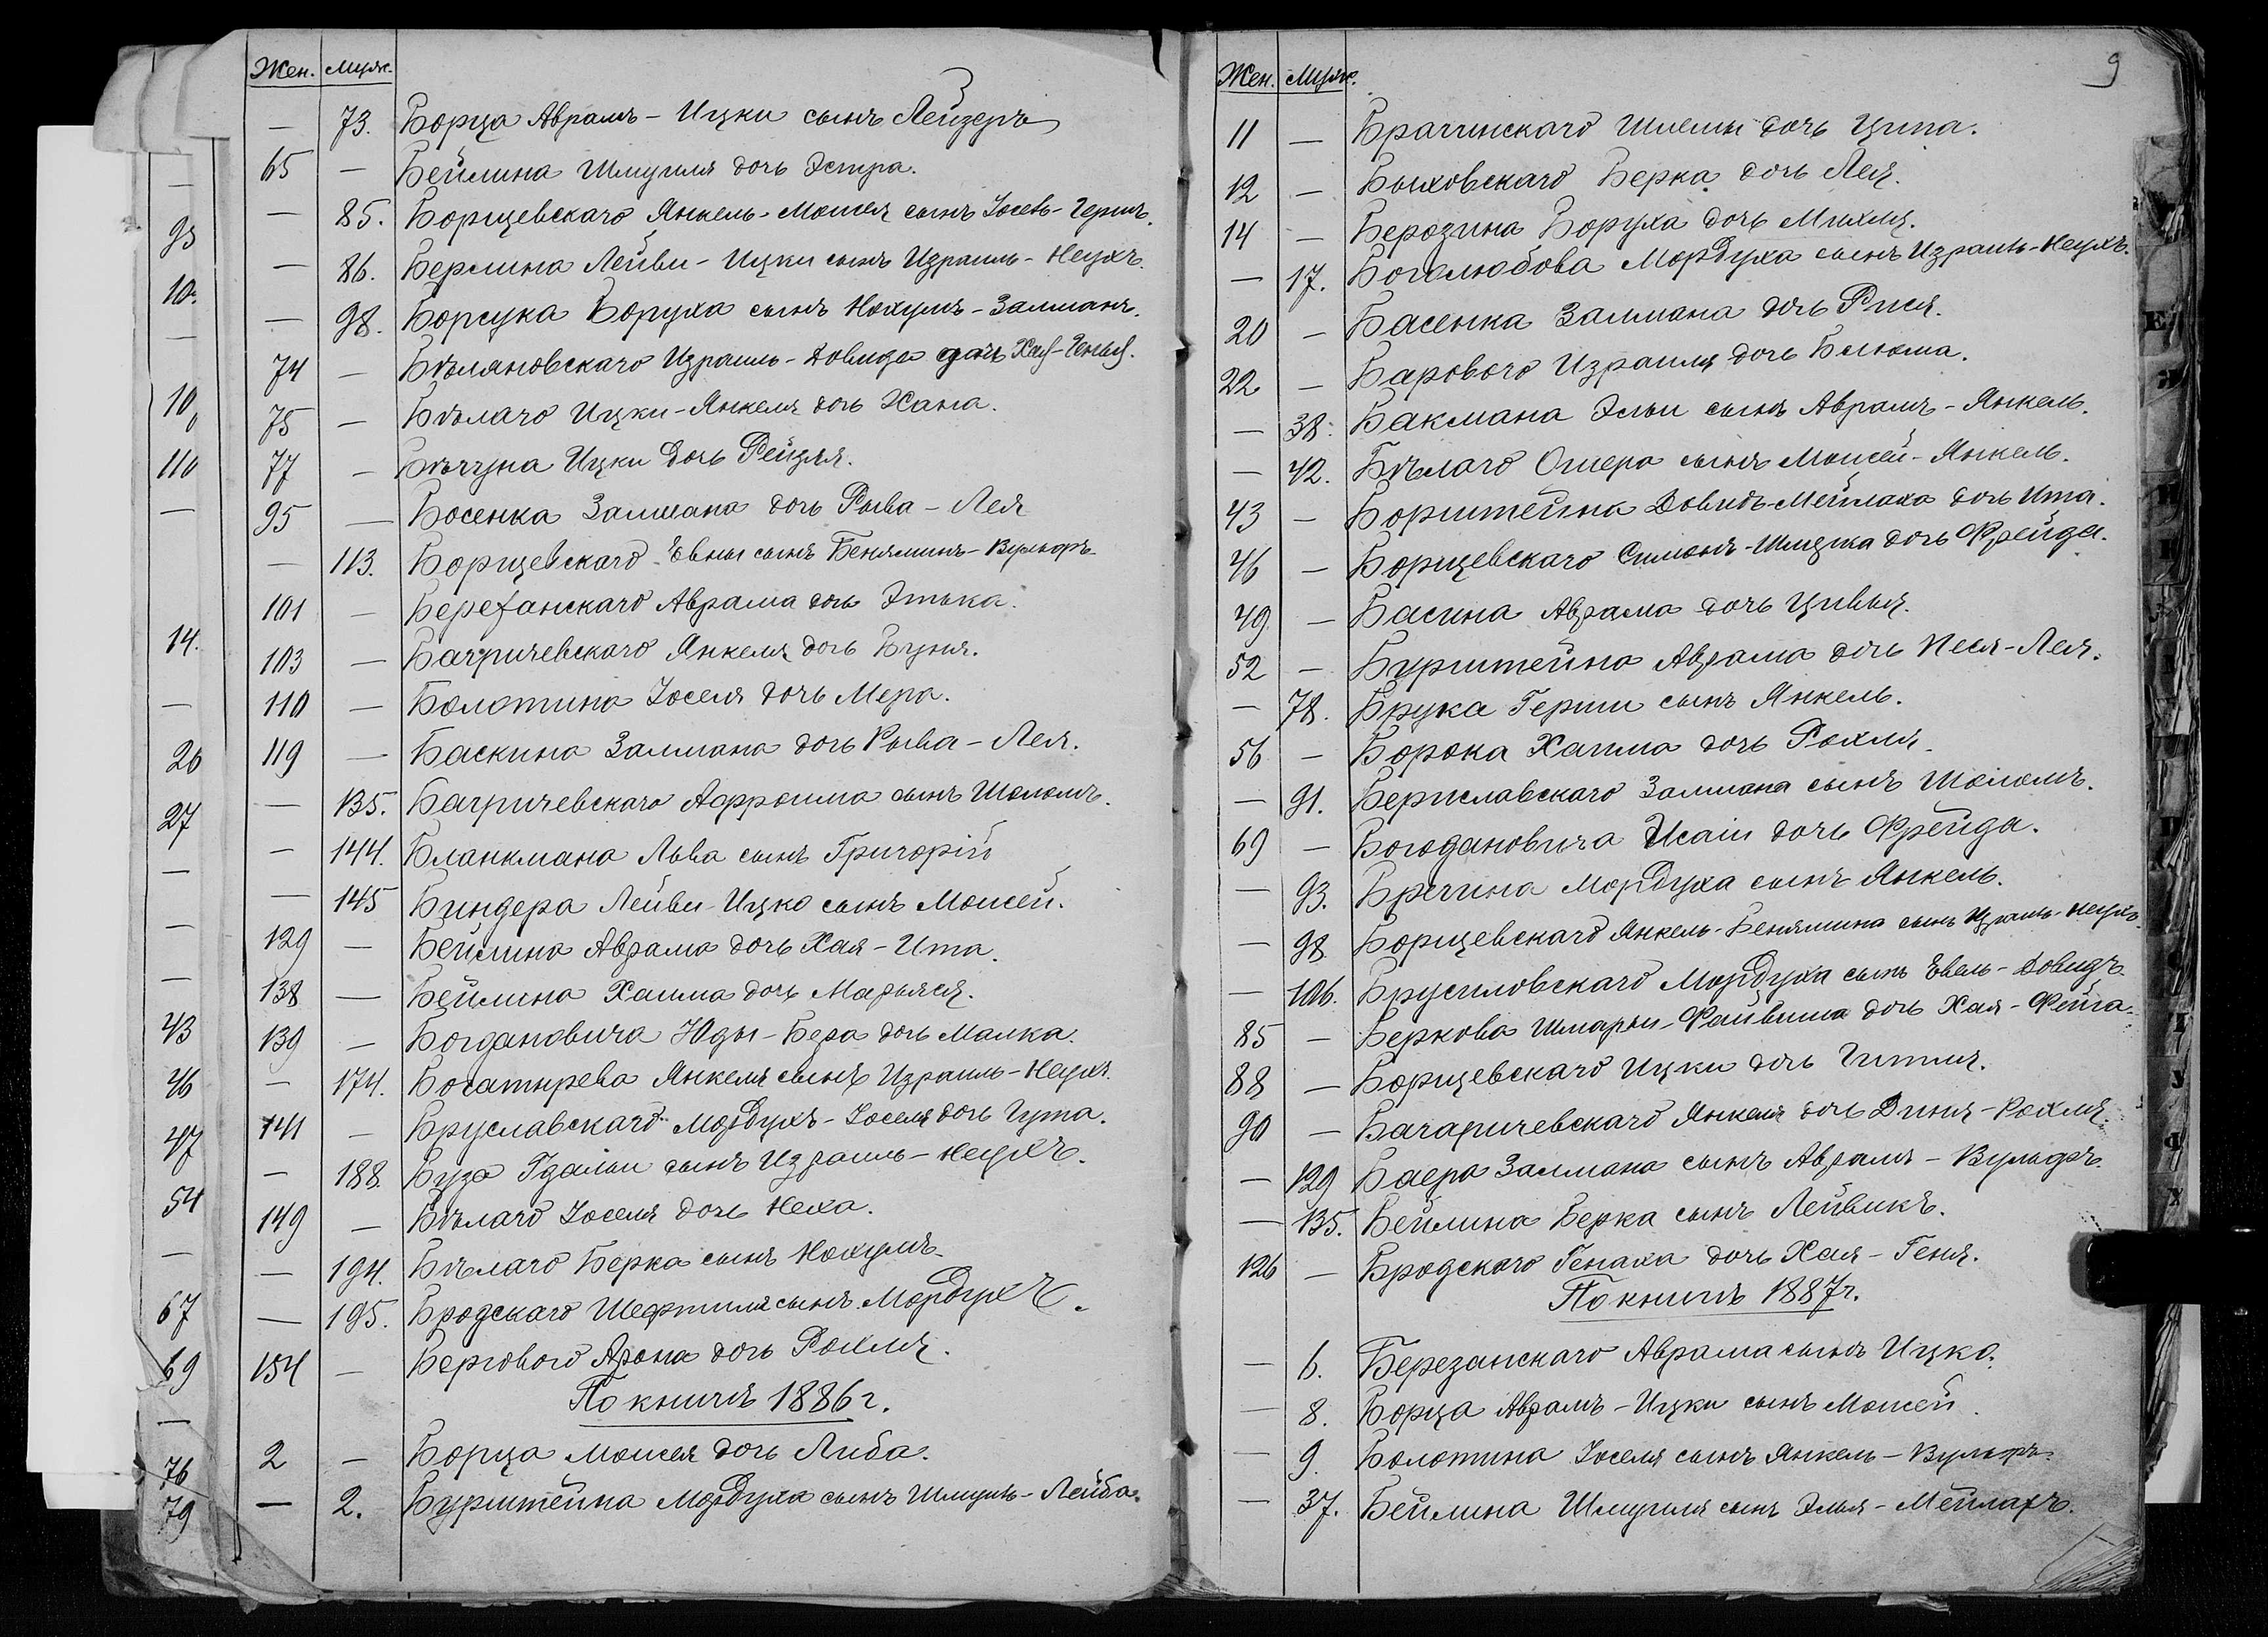 Жен. Муж.
— 73. Борца Аврамъ - Ицки сынъ Лейзеръ
65 — Бейлина Шмуиля дочь Эстра.
— 85. Борщевскаго Янкель-Мошея сынъ Іосевъ-Гершъ.
— 86. Берлина Лейви-Ицки сынъ Израиль-Неухъ.
— 98. Борсука Боруха сынъ Нохумъ-Залманъ.
74 — Бѣляновскаго Израиль-Довида дочь Хая-Генья.
75 — Бѣлаго Ицки-Янкеля дочь Хана.
77 — Бѣгуна Ицки дочь Рейзля.
95 — Босенка Залмана дочь Рыва-Лея
— 113. Борщевскаго Евны сынъ Беняминъ-Вульфъ.
101 — Березанскаго Аврама дочь Этька.
103 — Багричевскаго Янкеля дочь Буня.
110 — Болотина Іоселя дочь Мера.
119 — Баскина Залмана дочь Рыва-Лея.
— 135. Багричевскаго Афроима сынъ Шоломъ.
— 144. Бланкмана Льва сынъ Григорій
— 145 Биндера Лейви-Ицко сынъ Моисей.
129 — Бейлина Аврама дочь Хая-Ита.
138 — Бейлина Хаима дочь Марьяся.
139 — Богдановича Юды-Бера дочь Малка.
— 174. Богатырева Янкеля сынъ Израиль-Неухъ.
141 — Бруславскаго Мордухъ-Іоселя дочь Гута.
— 188. Буза Гдальи сынъ Израиль-Неухъ.
149 — Бѣлаго Іоселя дочь Неха.
— 194. Бѣлаго Берка сынъ Нохумъ.
— 195. Бродскаго Шефтиля сынъ Мордухъ.
154 — Бергового Арона дочь Рохля.
По книгѣ 1886 г.
2 — Борца Моисея дочь Либа.
— 2. Бурштейна Мордуха сынъ Шмуиль-Лейба.
93
10
10
110
14.
26
27
43
46
47
54
67
69
76
79
9
Жен. Муж.
11 — Брагинскаго Шлемы дочь Ципа.
12 — Быховскаго Берка дочь Лея.
14 — Берозина Боруха дочь Михля.
— 17. Боголюбова Мордуха сынъ Израиль-Неухъ.
20 — Басенка Залмана дочь Рися.
22 — Барового Израиля дочь Блюма.
— 38. Бакмана Эльи сынъ Аврамъ-Янкель.
— 42. Бѣлаго Ошера сынъ Моисей-Янкель.
43 — Борштейна Довидъ-Мейлаха дочь Ита.
46 — Борщевскаго Симонъ-Шлиома дочь Фрейда.
49 — Басина Аврама дочь Цивья.
52 — Бурштейна Аврама дочь Песя-Лея.
— 78. Брука Герши сынъ Янкель.
56 — Борока Хаима дочь Рохля.
— 91. Бериславскаго Залмана сынъ Шоломъ.
69 — Богодановича Исаіи дочь Фрейда.
— 93. Брегина Мордуха сынъ Янкель.
— 98. Борщевскаго Янкель-Бенямина сынъ Израиль-Неухъ.
— 106. Брусиловскаго Мордуха сынъ Евель-Довидъ.
85 — Беркова Шмарьи-Файвиша дочь Хая-Фейга.
88 — Борщевскаго Ицки дочь Гитля.
90 — Багаричевскаго Янкеля дочь Диня-Рохля.
— 129 Баера Залмана сынъ Аврамъ-Вульфъ.
— 135. Бейлина Берка сынъ Лейвикъ.
126 — Бродскаго Генаха дочь Хая-Геня.
По книгѣ 1887 г.
— 6. Березанскаго Аврама сынъ Ицко.
— 8. Борца Аврамъ-Ицки сынъ Моисей.
— 9. Болотина Іоселя сынъ Янкель-Вульфъ.
— 37. Бейлина Шмуиля сынъ Элья-Мейлахъ.